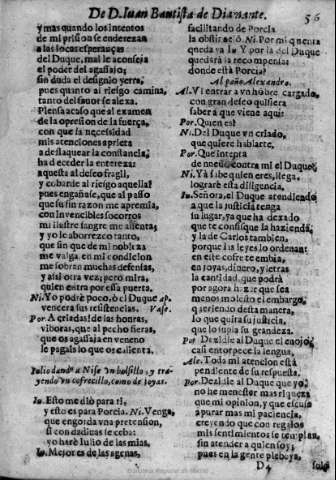 De D. Iuan Bautista de Diamante.
56
y mas quando los intentos
de mi prision se enderezan
a las locas esperanças
del Duque, mal le aconseja
el poder del agassajo;
sin duda el designio yerra,
pues quanto al riesgo camina,
tanto del fauor se alexa.
Piensa acaso que al examen
de la opresion de la fuerça,
con que la necessidad
mis atenciones aprieta
a desflaquear la constancia,
ha de ceder la entereza
aquesta al deseo fragil,
y cobarde al riesgo aquella?
pues engañase, que al passo
que su sin razon me apremia,
con inuencibles socorros
mi ilustre sangre me alienta;
y yo le aborrezco tanto,
que sin que de mi nobleza
me valga, en mi condicion
me sobran muchas defensas,
y assi otra vez; pero mira,
quien entra por essa puerta.
Ni. Yo podrè poco, ò el Duque
vencerà sus resistencias. Vase.
Por. A criadas! de las honras,
viboras, que al pecho fieras,
que os agassaja en veneno
le pagais lo que os calienta.
Iulio dando a Nise vn bolsillo, y trayendo
vn cofrecillo, como de joyas.
Iu. Esto me diò para ti,
y esto es para Porcia. Ni. Venga,
que engorda vna pretension,
si con dadiuas se ceba:
yo harè Iulio de las mias.
Iu. Mejor es de las agenas,
facilitando de Porcia
la obstinacion. Ni. Por mi quenta
queda ya Iu. Y por la del Duque
quedarà la recompensa:
donde està Porcia?
Al paño Alexandro.
Al. Vi entrar a vn hombre cargado,
con gran deseo quisiera
saber a que viene aqui:
Por. Quien es?
Ni. Del Duque vn criado,
que quiere hablarte.
Por. Que intenta
de nueuo contra mi el Duque?
Ni. Ya sabe quien eres, llega,
lograrè esta diligencia.
Iu. Señora, el Duque atendiendo
a que la justicia tenga
su lugar, ya que ha dexado
que te confisque la hazienda,
y la de Carlos tambien,
porque las leyes lo ordenan:
en este cofre te embia,
en joyas, dinero, y letras
la cantidad, que podrà
por agora hazer que sea
menos molesto el embargo,
queriendo desta manera,
lo que quita su justicia,
que lo supla su grandeza.
Por. Dezidle al Duque el enojo,
casi entorpece la lengua,
Ale. Toda mi atencion està
pendiente de su respuesta.
Por. Dezidle al Duque que yo,
no he menester mas riqueza
que mi opinion, y que escuse
apurar mas mi paciencia,
creyendo que con regalos
mis sentimientos se templan,
sin atender a quien soy;
pues en la gente plebeya,
D4
solo